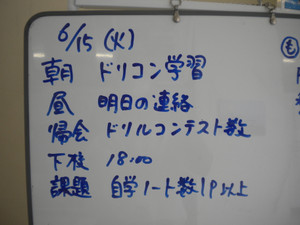 6/15(火)
朝 ドリコン学習
昼 明日の連絡
帰会 ドリルコンテスト数
下校 18:00
課題 自学ノート数1P以上
も